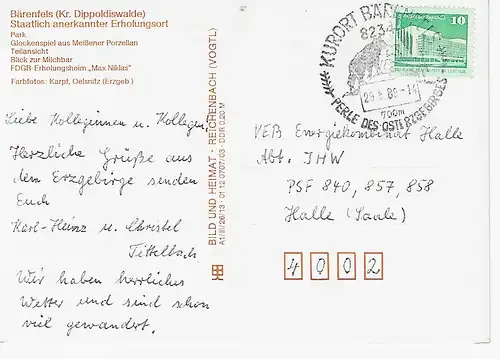 Bärenfels (Kr. Dippoldiswalde)
Staatlich anerkannter Erholungsort
Park
Glockenspiel aus Meißener Porzellan
Teilansicht
Blick zur Milchbar
FDGB-Erholungsheim „Max Niklas"
Farbfotos: Karpf, Oelsnitz (Erzgeb.)
Liebe Kolleginnen u. Kollegen,
Herzliche Grüße aus
dem Erzgebirge senden
Euch
Karl-Heinz u. Christel
Tittelbach
Wir haben herrliches
Wetter und sind schon
viel gewandert.
BILD UND HEIMAT · REICHENBACH (VOGTL)
A1/III/26/13 · 01 12 0707/03 · DDR 0,20 M
KURORT
823
700m
PERLE DES OSTERZGEBIRGES
10
VEB Energiekombinat Halle
Abt. IHW
PSF 840, 857, 858
Halle (Saale)
4002